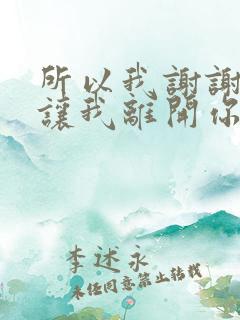 所以我謝謝
讓我離開你
李述永
未任同意禁止转载